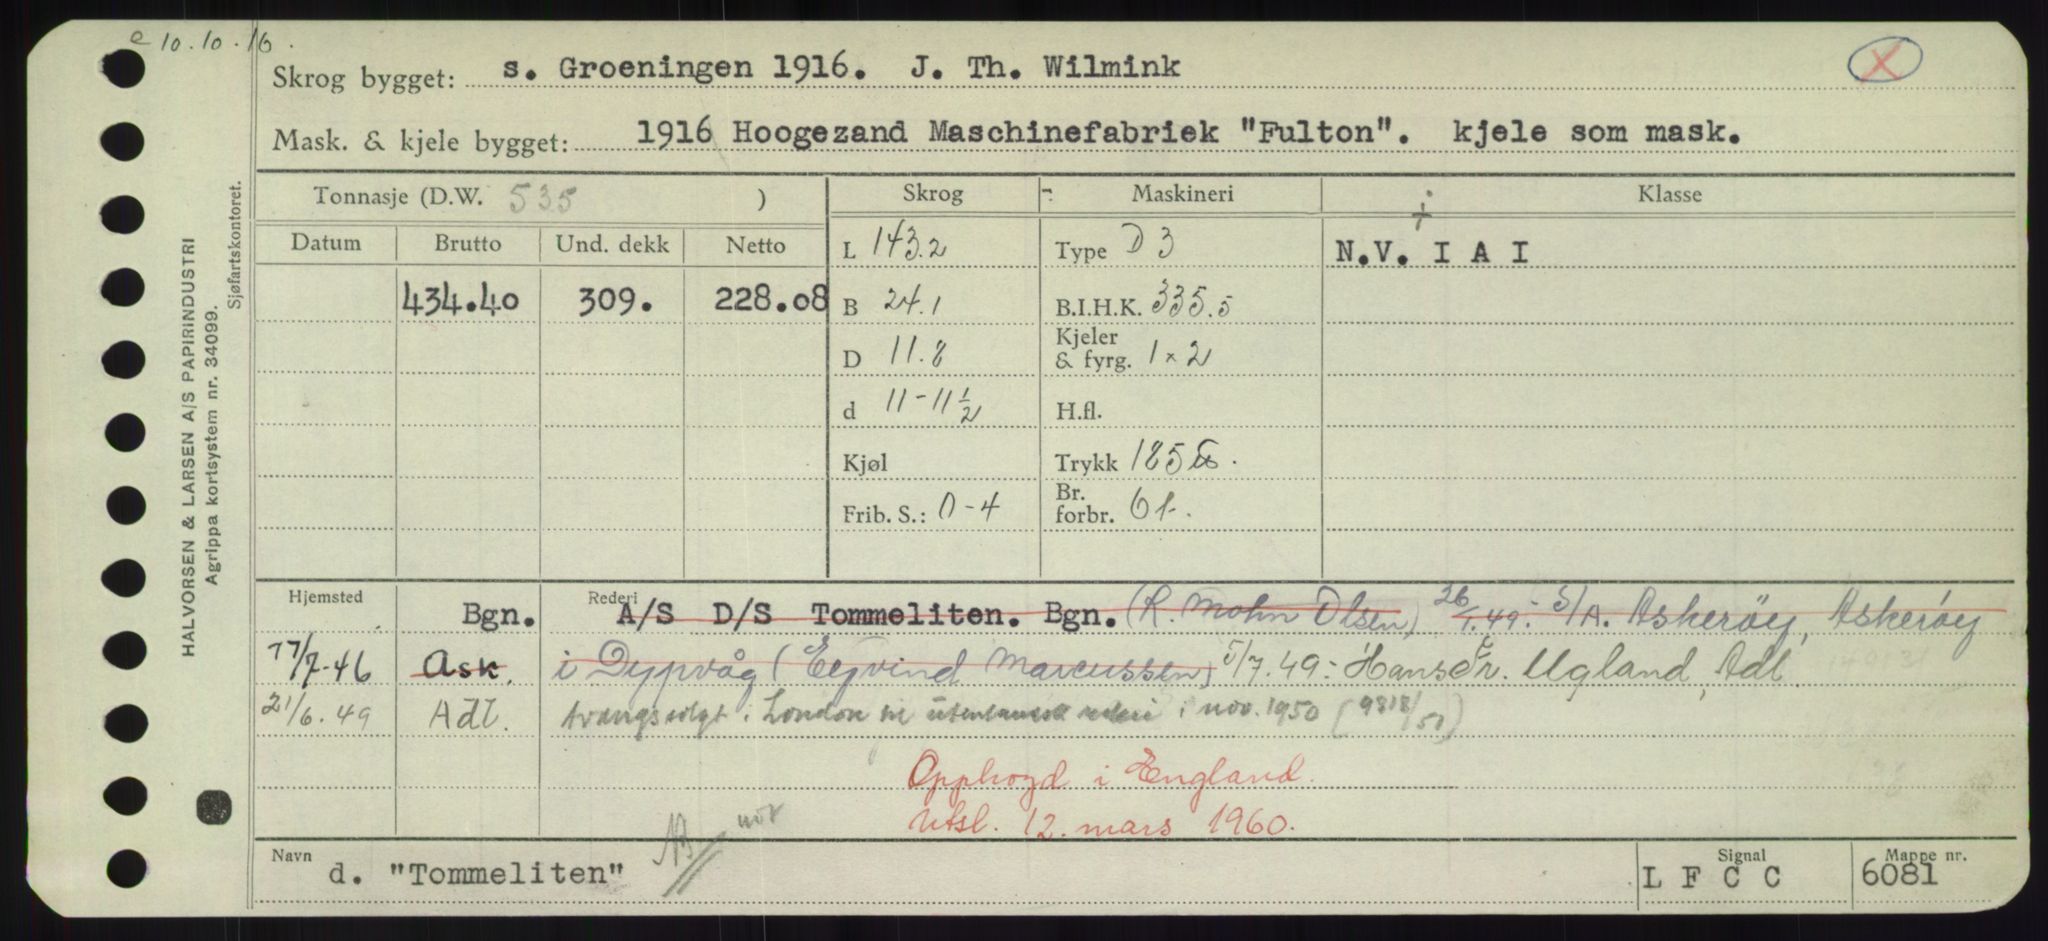 e 10.10.16.
Skrog bygget: s. Groeningen 1916. J. Th. Wilmink
X
Mask. & kjele bygget: 1916 Hoogezand Maschinefabriek "Fulton". kjele som mask.
Tonnasje (D.W. 535 )
Skrog
Maskineri
Klasse
Datum Brutto Und. dekk Netto
434.40 309. 228.08
L 143.2
B 24.1
D 11.8
d 11-11½
Kjøl
Frib. S.: 0-4
Type D 3
B.I.H.K. 335.5
Kjeler
& fyrg. 1 x 2
H.fl.
Trykk 185 lb.
Br.
forbr. 6 t.
N.V. I A I
Hjemsted
Rederi
Bgn. A/S D/S Tommeliten. Bgn. (R. Mohn Olsen) 26/1.49:- S/A. Askerøy, Askerøy
17/7-46 Ask. i Dypvåg (Eyvind Marcussen) 5/7.49:- Hans Fr. Ugland, Adl.
21/6.49 Adl. tvangssolgt i London til utenlandsk rederi i nov. 1950 (9818/50)
Opphogd i England.
Utsl. 12. mars 1960.
Navn d. "Tommeliten"
Signal
L F C C
Mappe nr.
6081
HALVORSEN & LARSEN A/S PAPIRINDUSTRI
Agrippa kortsystem nr. 34099.
Sjøfartskontoret.